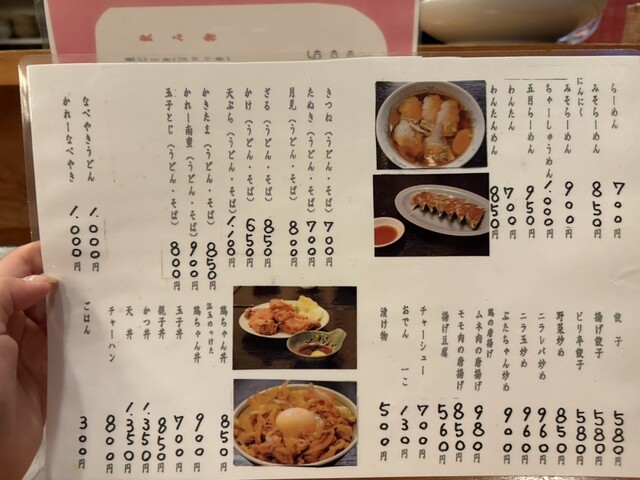 らーめん 700円
みそらーめん 850円
にんにく
みそらーめん 900円
ちゃーしゅうめん 1.000円
五目らーめん 950円
わんたん 700円
わんたんめん 850円
きつね（うどん・そば） 700円
たぬき（うどん・そば） 700円
月見（うどん・そば） 800円
ざる（うどん・そば） 850円
かけ（うどん・そば） 650円
天ぷら（うどん・そば） 1.100円
かきたま（うどん・そば） 850円
かれー南蛮（うどん・そば） 900円
玉子とじ（うどん・そば） 800円
なべやきうどん 1.000円
かれーなべやき 1.000円
餃子 580円
揚げ餃子 580円
ピリ辛餃子
野菜炒め 850円
ニラレバ炒め 960円
ニラ玉炒め 960円
ぶたちゃん炒め 900円
鶏の唐揚げ
ムネ肉の唐揚げ 980円
モモ肉の唐揚げ 850円
揚げ豆腐 560円
チャーシュー 700円
おでん 一こ 130円
漬け物 500円
鶏ちゃん丼 850円
温玉のっけた
鶏ちゃん丼 900円
玉子丼 700円
親子丼 850円
かつ丼 1.350円
天丼 1.350円
チャーハン 800円
ごはん 300円